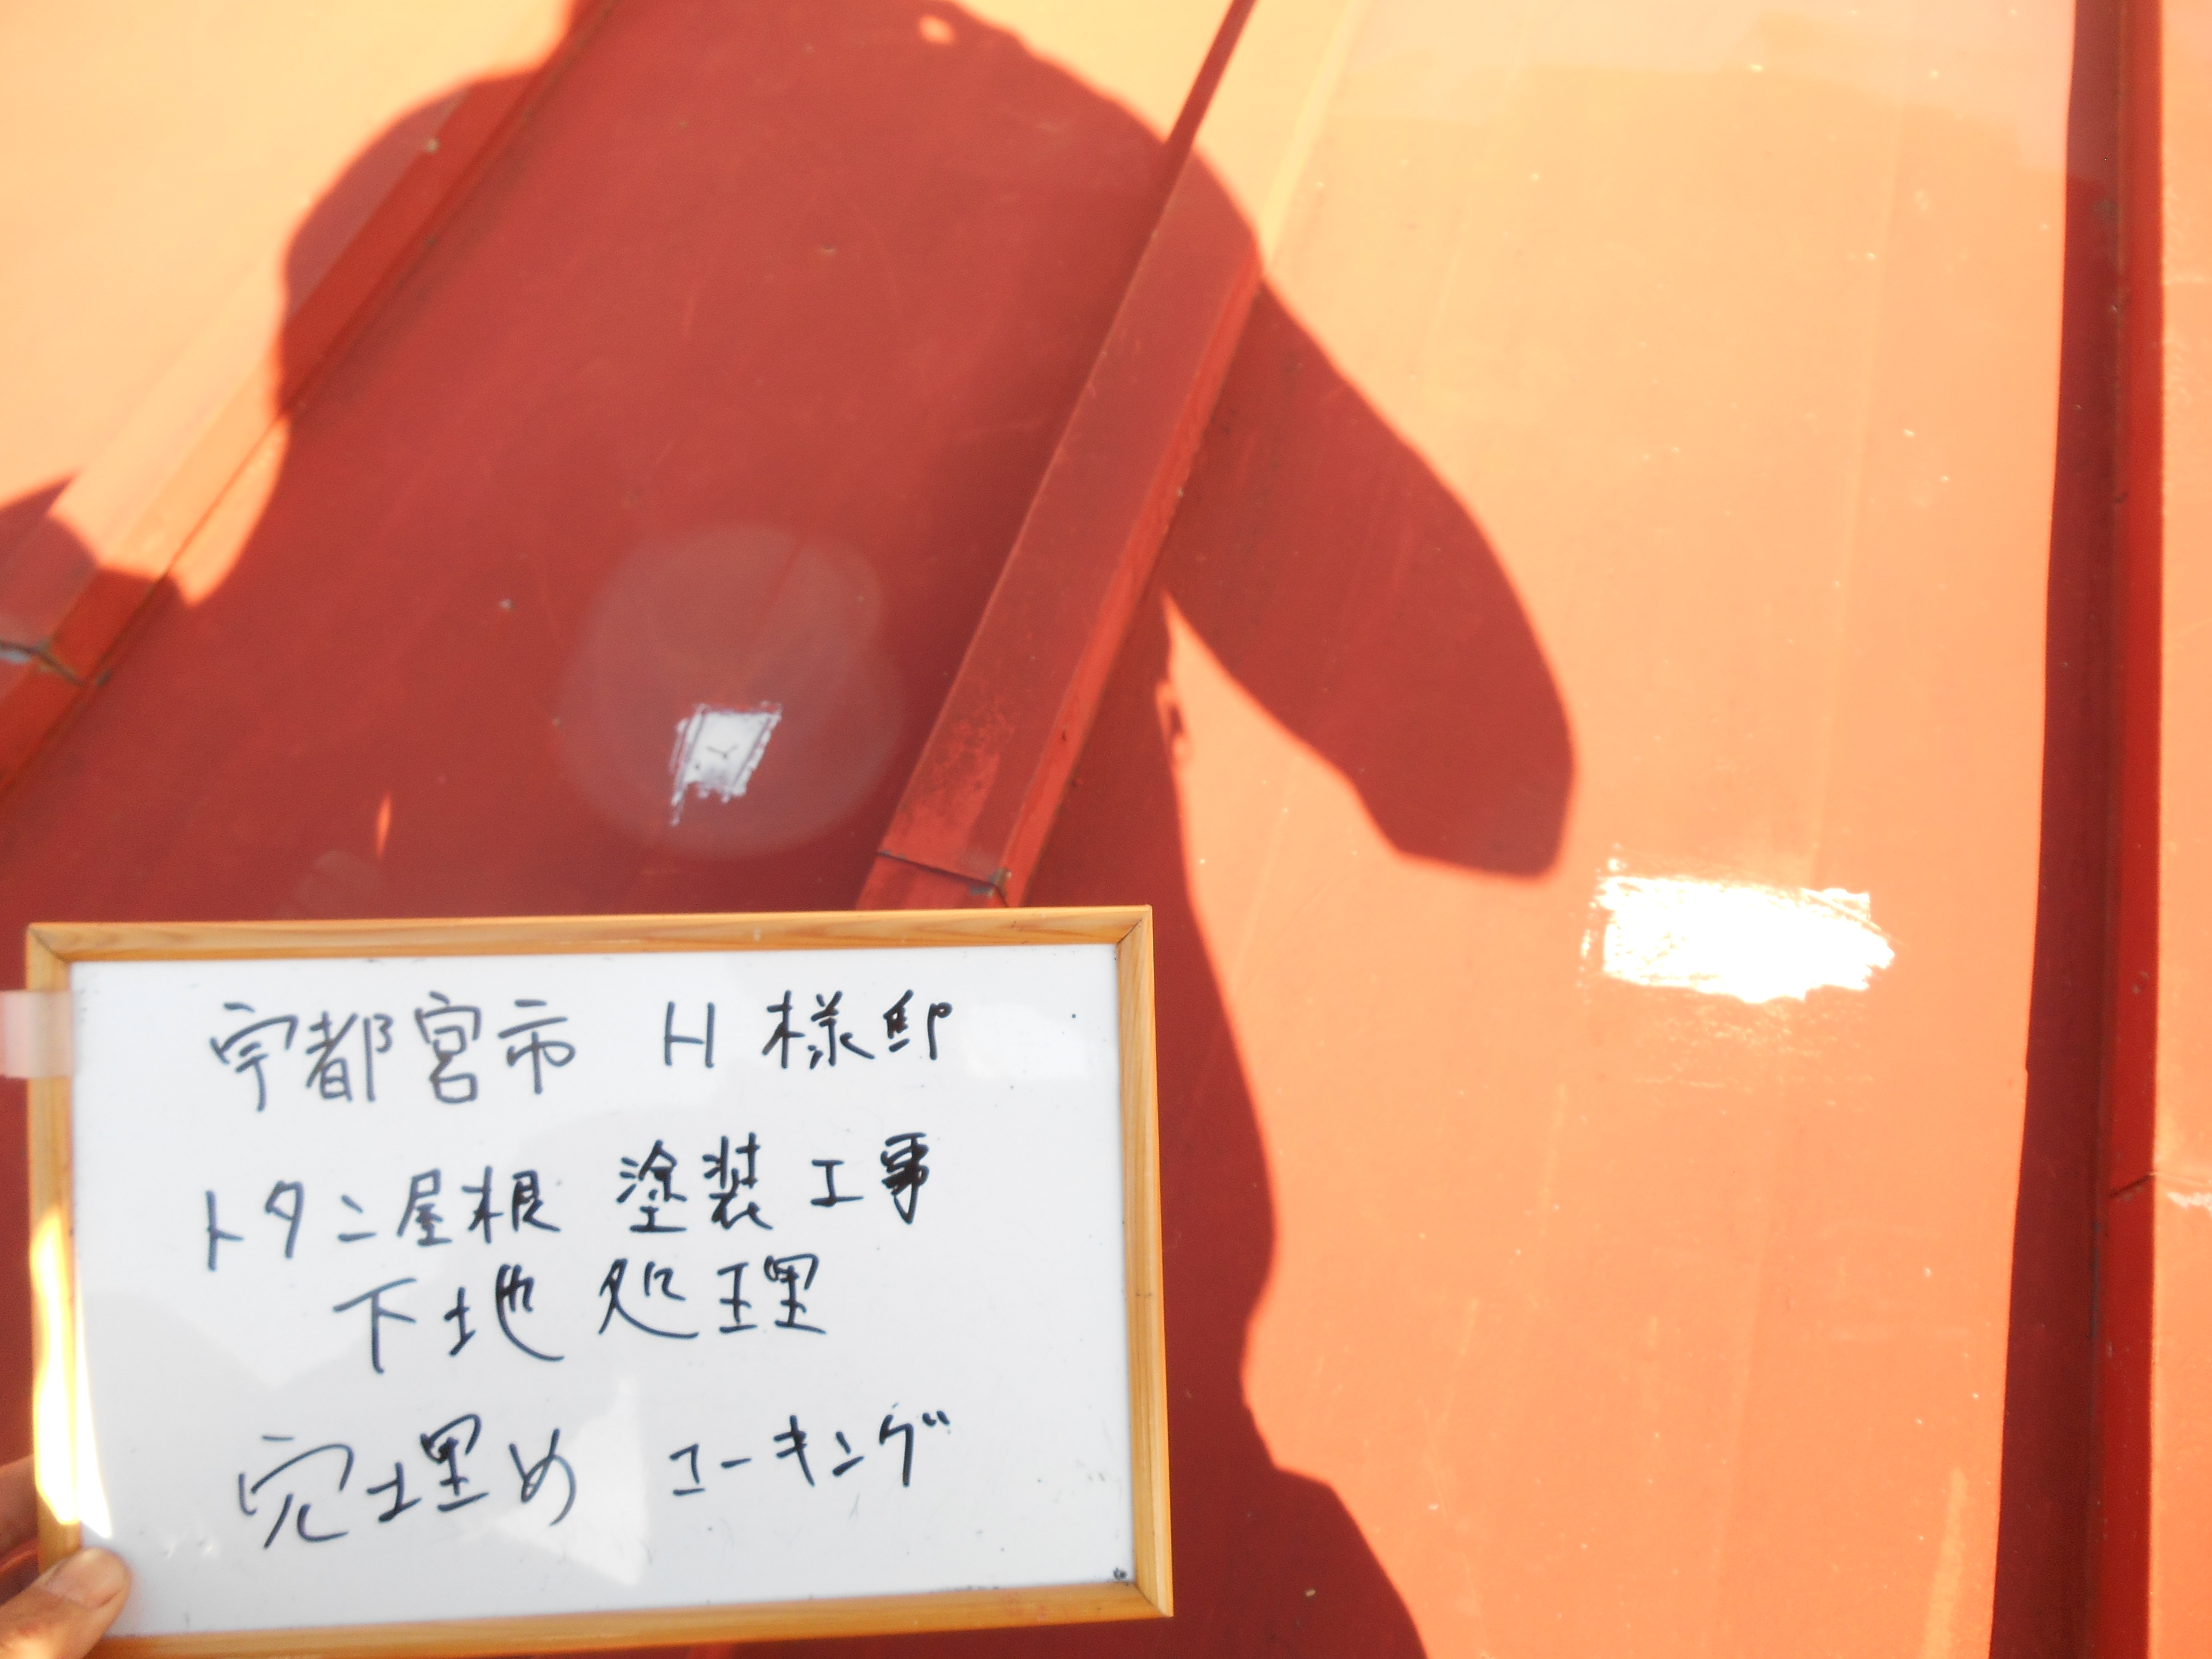 宇都宮市 H 様邸
トタン屋根 塗装工事
下地処理
穴埋め コーキング